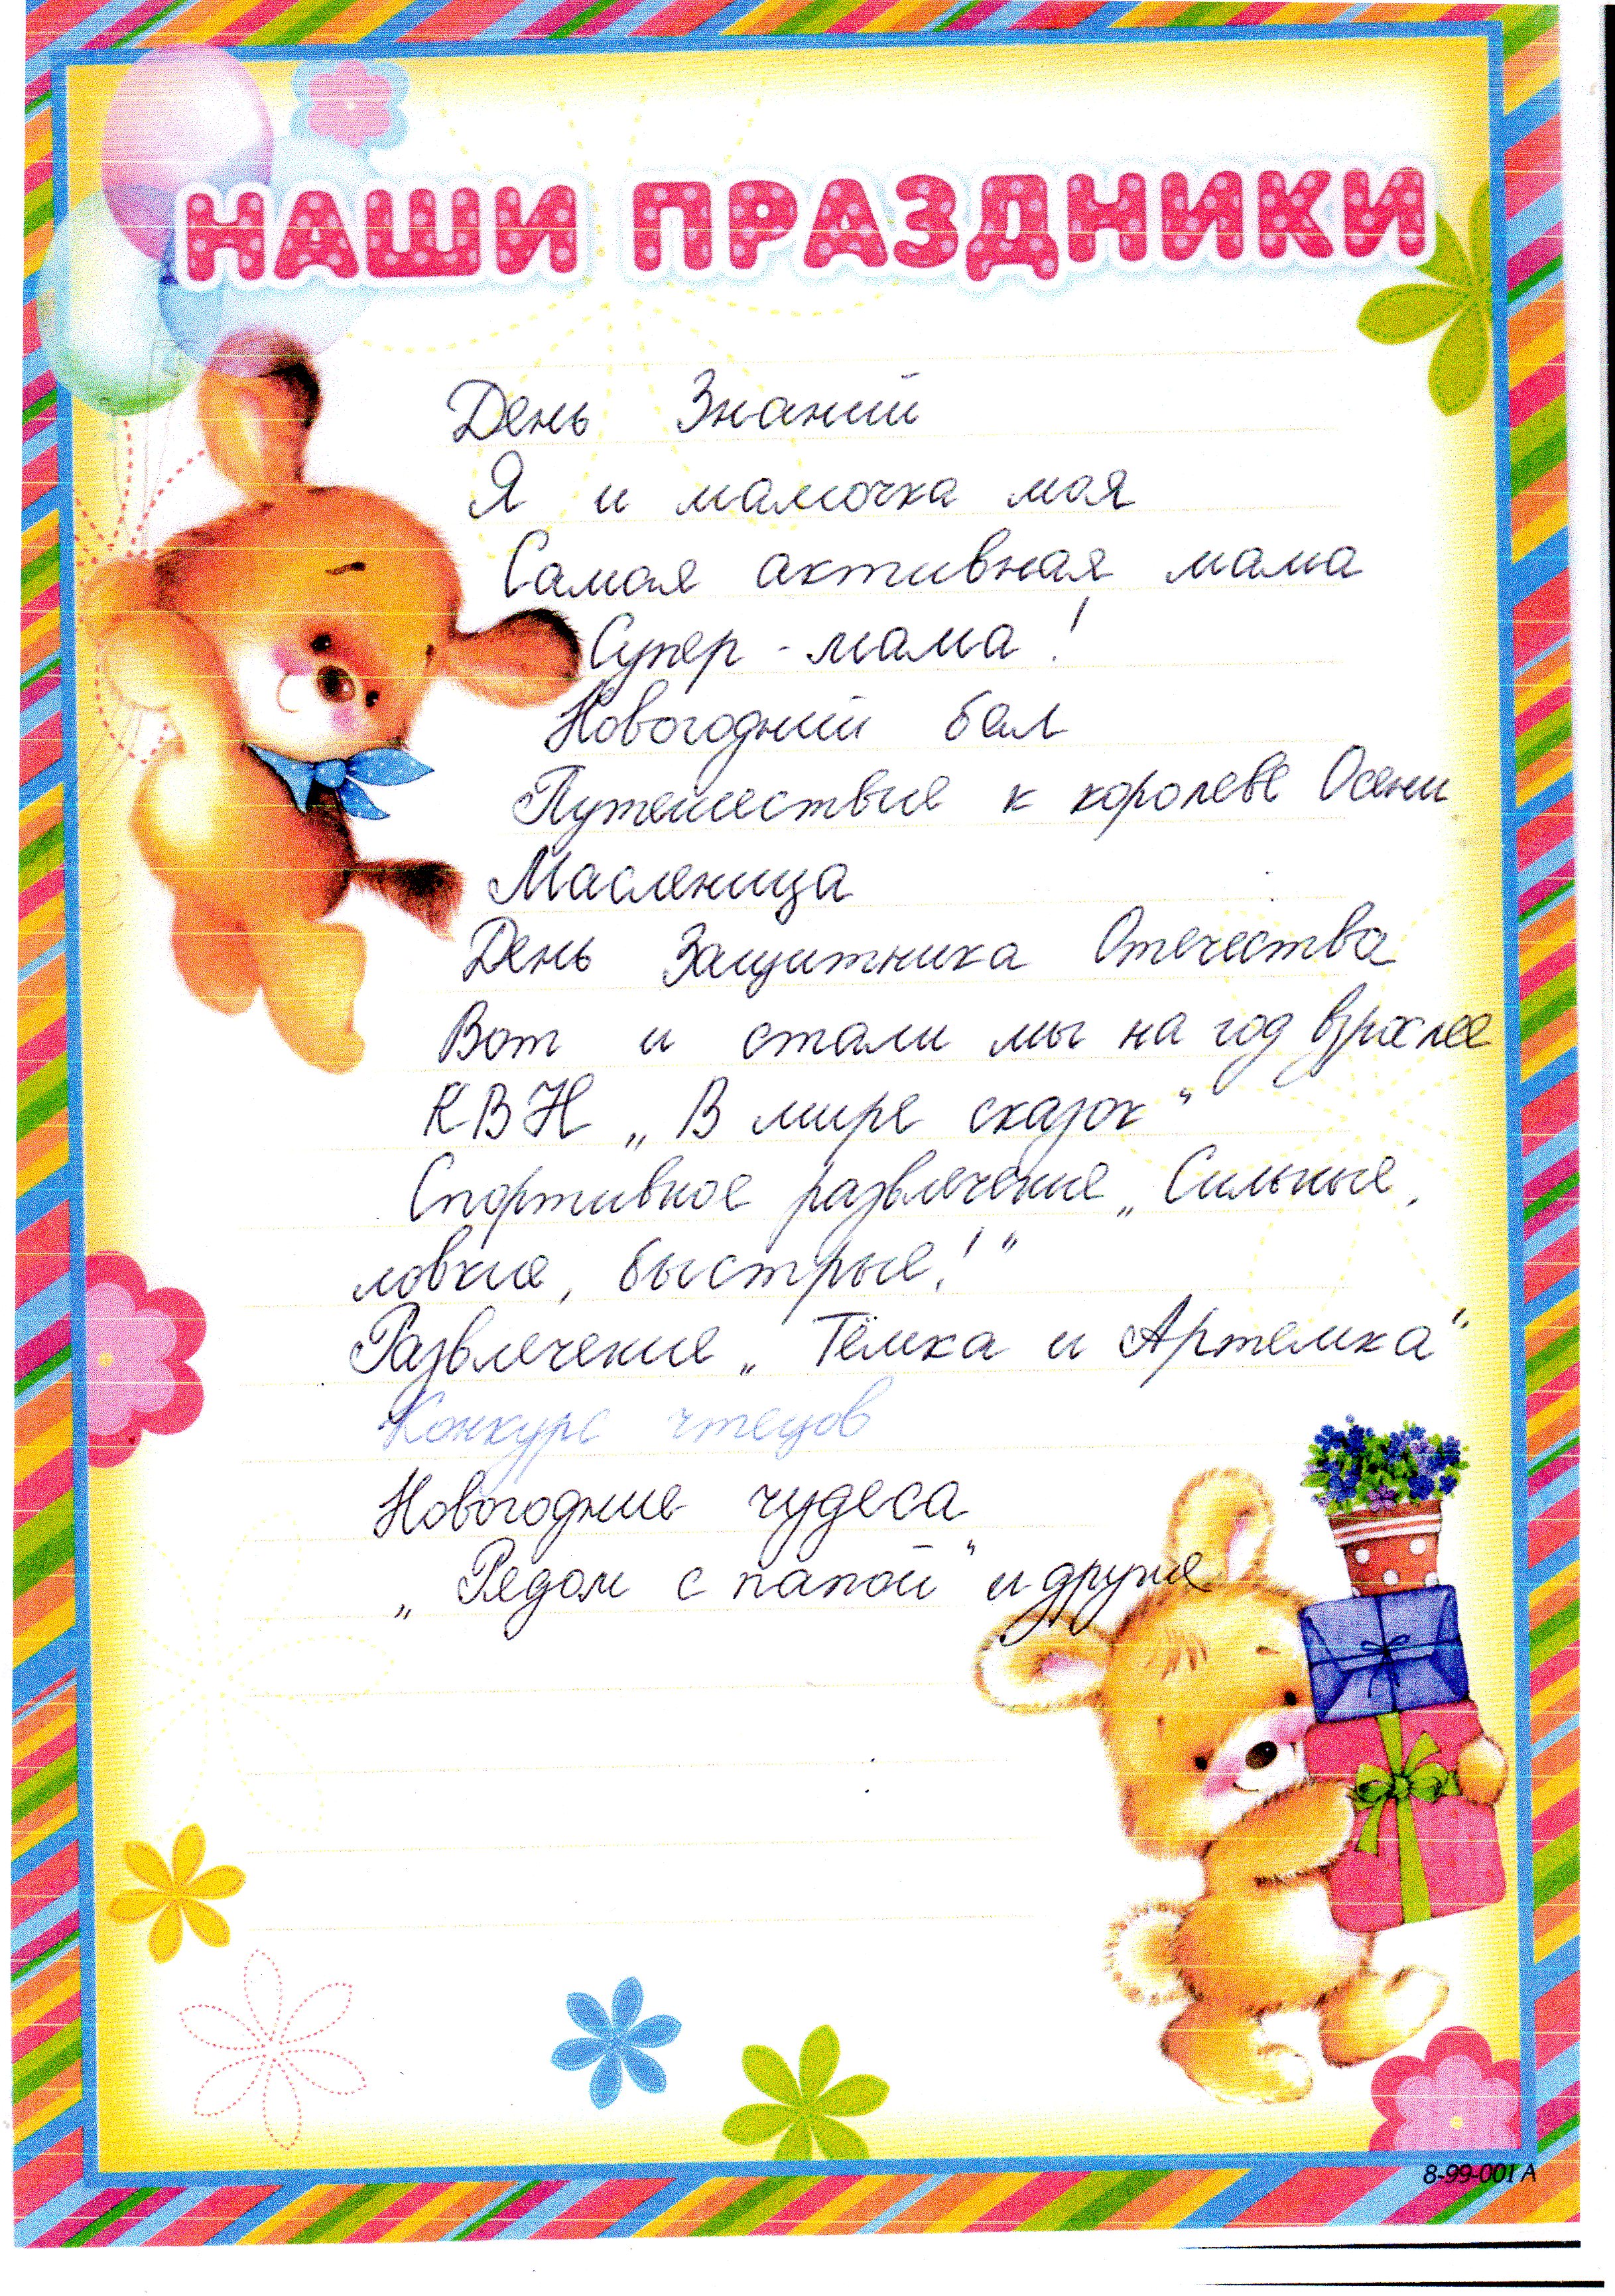 НАШИ ПРАЗДНИКИ
День Знаний
Я и мамочка моя
Самая активная мама
Супер - мама!
Новогодний бал
Путешествие к королеве Осени
Масленица
День Защитника Отечества
Вот и стали мы на год взрослее
КВН „В мире сказок"
Спортивное развлечение „Сильные,
ловкие, быстрые!"
Развлечение „Тёмка и Артемка"
Конкурс чтецов
Новогодние чудеса
„Рядом с папой" и другие
8-99-001 А